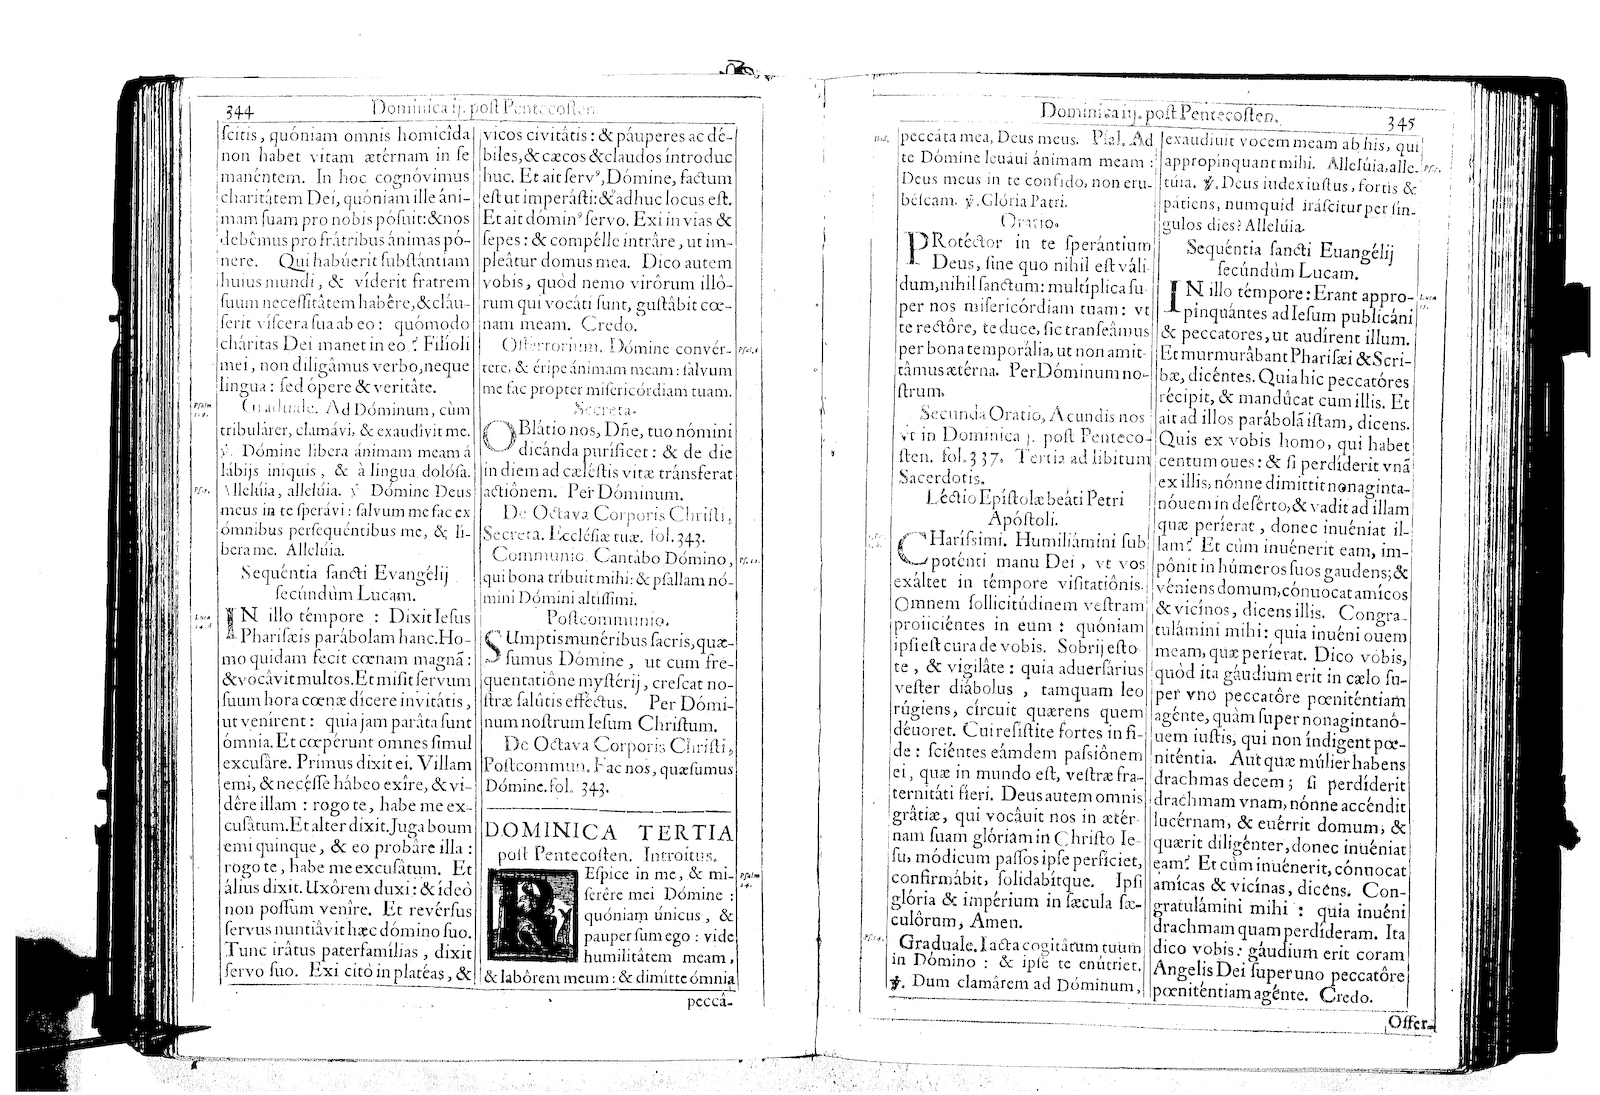 344
Dominica ij. poſt Pentecoſten.
ſcitis, quóniam omnis homicída
non habet vitam ætérnam in ſe
manéntem. In hoc cognóvimus
charitâtem Dei, quóniam ille áni-
mam ſuam pro nobis póſuit: & nos
debêmus pro frátribus ánimas pó-
nere. Qui habúerit ſubſtántiam
huius mundi, & víderit fratrem
ſuum neceſſitâtem habêre, & cláu-
ſerit víſcera ſua ab eo: quómodo
cháritas Dei manet in eo? Filíoli
mei, non diligâmus verbo, neque
lingua: ſed ópere & veritâte.
Graduale. Ad Dóminum, cùm
tribulárer, clamávi, & exaudîvit me.
℣. Dómine libera ánimam meam á
lábijs iniquis, & à lingua dolóſa.
Allelúia, allelúia. ℣ Dómine Deus
meus in te ſperávi: ſalvum me fac ex
ómnibus perſequéntibus me, & lí-
bera me. Allelúia.
Sequéntia ſancti Evangélij
ſecúndùm Lucam.
IN illo témpore: Dixit Ieſus
Phariſæis parábolam hanc. Ho-
mo quidam fecit cœnam magnã:
& vocâvit multos. Et miſit ſervum
ſuum hora cœnæ dícere invitátis,
ut venírent: quia jam parâta ſunt
ómnia. Et cœpérunt omnes ſimul
excuſâre. Primus dixit ei. Villam
emi, & necéſſe hábeo exîre, & vi-
dêre illam: rogo te, habe me ex-
cuſâtum. Et alter dixit. Juga boum
emi quinque, & eo probâre illa:
rogo te, habe me excuſâtum. Et
álius dixit. Uxórem duxi: & ídeó
non poſſum venîre. Et revérſus
ſervus nuntiâvit hæc dómino ſuo.
Tunc irâtus paterfamílias, dixit
ſervo ſuo. Exi citò in platéas, &
vicos civitâtis: & páuperes ac dé-
biles, & cæcos & claudos íntroduc
huc. Et ait ſerv⁹, Dómine, factum
eſt ut imperáſti: & adhuc locus eſt.
Et ait dómin⁹ ſervo. Exi in vias &
ſepes: & compélle intrâre, ut im-
pleâtur domus mea. Dico autem
vobis, quòd nemo virórum illô-
rum qui vocáti ſunt, guſtâbit cœ-
nam meam. Credo.
Offertorium. Dómine convér-
tere, & éripe ánimam meam: ſalvum
me fac propter miſericórdiam tuam.
Secreta.
OBlátio nos, Dñe, tuo nómini
dicánda puríficet: & de die
in diem ad cæléſtis vitæ tránsferat
actiônem. Per Dóminum.
De Octava Corporis Chriſti,
Secreta. Eccléſiæ tuæ. fol. 343.
Communio. Cantábo Dómino,
qui bona tribuit mihi: & pſallam nó-
mini Dómini altíſſimi.
Poſtcommunio.
SUmptis munéribus ſacris, quæ-
ſumus Dómine, ut cum fre-
quentatiône myſtérij, creſcat no-
ſtræ ſalûtis efféctus. Per Dómi-
num noſtrum Ieſum Chriſtum.
De Octava Corporis Chriſti,
Poſtcommun. Fac nos, quæſumus
Dómine. fol. 343.
DOMINICA TERTIA
poſt Pentecoſten. Introitus.
REſpice in me, & mi-
ſerêre mei Dómine:
quóniam únicus, &
pauper ſum ego: vide
humilitâtem meam,
& labôrem meum: & dimítte ómnia
peccâ-
Dominica iij. poſt Pentecoſten.
345
peccáta mea, Deus meus. Pſal. Ad
te Dómine leuáui ánimam meam:
Deus meus in te confido, non eru-
béſcam. ℣. Glória Patri.
Oratio.
PRotéctor in te ſperántium
Deus, ſine quo nihil eſt váli-
dum, nihil ſanctum: multíplica ſu-
per nos miſericórdiam tuam: vt
te rectôre, te duce, ſic tranſeâmus
per bona temporália, ut non amit-
tâmus ætérna. Per Dóminum no-
ſtrum.
Secunda Oratio, A cundis nos
vt in Dominica j. poſt Penteco-
ſten. fol. 337. Tertia ad libitum
Sacerdotis.
Léctio Epíſtolæ beáti Petri
Apóſtoli.
CHaríſſimi. Humiliámini ſub
poténti manu Dei, vt vos
exáltet in témpore viſitatiônis.
Omnem ſollicitúdinem veſtram
proiiciéntes in eum: quóniam
ipſi eſt cura de vobis. Sobrij eſto-
te, & vigilâte: quia aduerſárius
veſter diábolus, tamquam leo
rúgiens, círcuit quærens quem
déuoret. Cui reſiſtite fortes in fi-
de: ſciéntes eámdem paſsiônem
ei, quæ in mundo eſt, veſtræ fra-
ternitáti fieri. Deus autem omnis
grâtiæ, qui vocâuit nos in ætér-
nam ſuam glóriam in Chriſto Ie-
ſu, módicum paſſos ipſe perfíciet,
confirmábit, ſolidabítque. Ipſi
glória & impérium in ſæcula ſæ-
culôrum, Amen.
Graduale. Iacta cogitâtum tuum
in Dómino: & ipſe te enútriet.
℣. Dum clamârem ad Dóminum,
exaudiuit vocem meam ab his, qui
appropinquant mihi. Allelúia, alle-
lúia. ℣. Deus iudex iuſtus, fortis &
pátiens, numquid iráſcitur per ſin-
gulos dies? Allelúia.
Sequéntia ſancti Euangélij
ſecúndùm Lucam.
IN illo témpore: Erant appro-
pinquántes ad Ieſum publicáni
& peccatores, ut audírent illum.
Et murmurâbant Phariſæi & Scri-
bæ, dicéntes. Quia hic peccatóres
récipit, & mandûcat cum illis. Et
ait ad illos parábolã iſtam, dicens.
Quis ex vobis homo, qui habet
centum oues: & ſi perdíderit vnã
ex illis, nónne dimittit nonaginta-
nóuem in deſérto, & vadit ad illam
quæ períerat, donec inuéniat il-
lam? Et cùm inuénerit eam, im-
pónit in húmeros ſuos gaudens; &
véniens domum, cónuocat amícos
& vicínos, dicens illis. Congra-
tulámini mihi: quia inuéni ouem
meam, quæ períerat. Dico vobis,
quòd ita gáudium erit in cælo ſu-
per vno peccatôre pœniténtiam
agénte, quàm ſuper nonagintanó-
uem iuſtis, qui non índigent pœ-
niténtia. Aut quæ múlier habens
drachmas decem; ſi perdíderit
drachmam vnam, nónne accéndit
lucérnam, & euérrit domum, &
quærit diligénter, donec inuéniat
eam? Et cùm inuénerit, cónuocat
amícas & vicínas, dicéns. Con-
gratulámini mihi: quia inuéni
drachmam quam perdíderam. Ita
dico vobis: gáudium erit coram
Angelis Dei ſuper uno peccatôre
pœniténtiam agénte. Credo.
Offer-